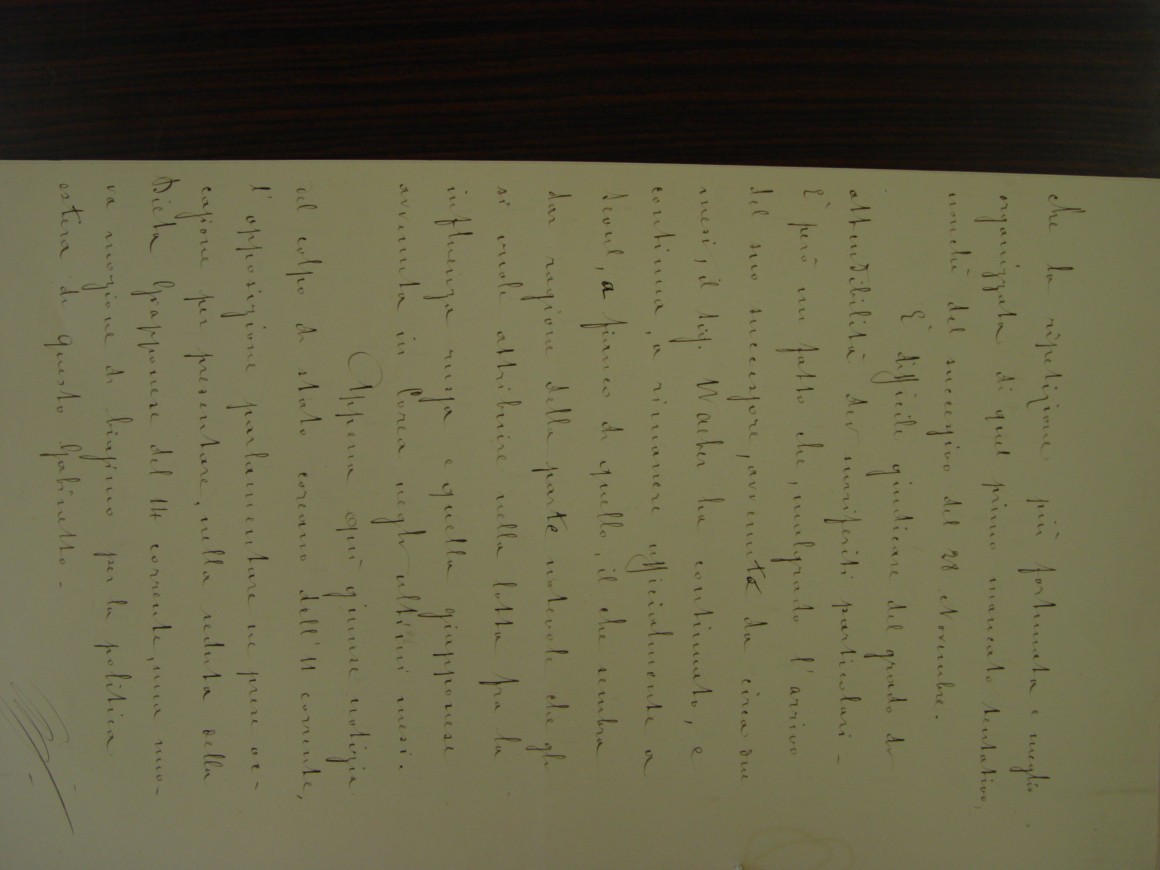 che la ripetizione più fortunata e meglio
organizzata di quel primo mancato tentativo,
nonchè del successivo del 28 Novembre.
È difficile giudicare del grado di
attendibilità dei surriferiti particolari -
È però un fatto che, malgrado l'arrivo
del suo successore, avvenuta da circa due
mesi, il Sig. Waeber ha continuato, e
continua, a rimanere ufficialmente a
Seoul, a fianco di quello, il che sembra
dar ragione della parte notevole che gli
si vuole attribuire nella lotta fra la
influenza russa e quella giapponese
avvenuta in Corea negli ultimi mesi.
Appena qui giunse notizia
del colpo di stato coreano dell'11 corrente,
l'opposizione parlamentare ne prese oc-
casione per presentare, nella seduta della
Dieta Giapponese del 14 corrente, una nuo-
va mozione di biasimo per la politica
estera di questo Gabinetto -